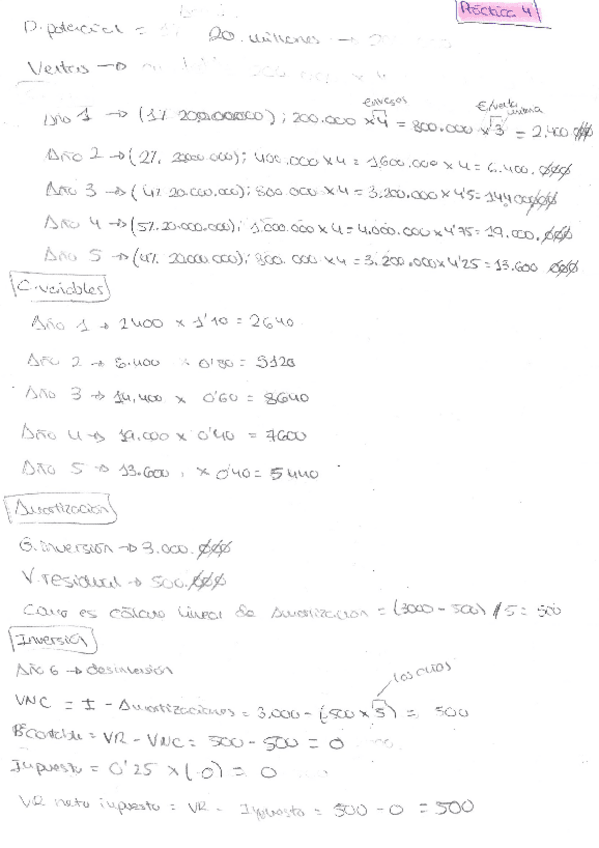 Práctica 4
D. potencial = 20. millones →
Ventas →
envases €/venta unitaria
Año 1 → (1% 20.000.000); 200.000 x 4 = 800.000 x 3 = 2.400.000
Año 2 → (2%. 20.000.000); 400.000 x 4 = 1.600.000 x 4 = 6.400.000
Año 3 → (4% 20.000.000); 800.000 x 4 = 3.200.000 x 4'5 = 14.400.000
Año 4 → (5%. 20.000.000); 1.000.000 x 4 = 4.000.000 x 4'75 = 19.000.000
Año 5 → (4%. 20.000.000); 800.000 x 4 = 3.200.000 x 4'25 = 13.600 000
C. variables
Año 1 → 2400 x 1'10 = 2640
Año 2 → 6.400 x 0'80 = 5120
Año 3 → 14.400 x 0'60 = 8640
Año 4 → 19.000 x 0'40 = 7600
Año 5 → 13.600 x 0'40 = 5440
Amortización
G. inversión → 3.000.000
V. residual → 500.000
Como es cálculo lineal de Amortización = (3000 - 500) / 5 = 500
Inversión
Año 6 → desinversión
los años
VNC = I - Amortizaciones = 3.000 - (500 x 5) = 500
Bº Contable = VR - VNC = 500 - 500 = 0
Impuesto = 0'25 x (0) = 0
VR neto impuesto = VR - Impuesto = 500 - 0 = 500